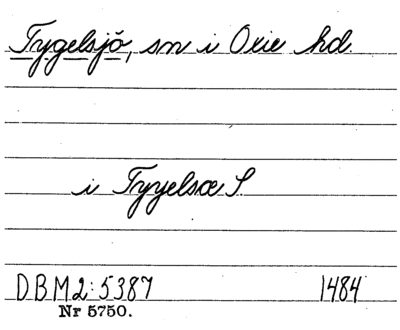 Tygelsjö, sn i Oxie hd.
i Tyyelsœ S.
DBM2:5387 1484
Nr 5750.